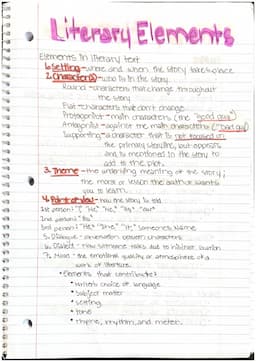 Literary Elements
Elements in literary text
1. Setting - where and when the story takes place
2. Character(s) - who is in the story
Round - characters that change throughout
the story
Flat - characters that don't change
Protagonist - main characters (the "good guy")
Antagonist - against the main characters ("bad guy")
Supporting - a character that is not focused in
the primary storyline, but appears
and is mentioned in the story to
add to the plot.
3. Theme - the underlying meaning of the story;
the moral or lesson the author wants
you to learn.
4. Point of view - how the story is told
1st person: "I,"
2nd person:
3rd person: "He," "She," "It," someone's Name
5. Dialogue - conversation between characters
6. Dialect - how someone talks due to his/her
7. Mood - the emotional quality or atmosphere of a
work of literature.
• Elements that contribute:
• writer's choice of language
• subject matter
• setting
• tone
• rhyme, rhythm, and meter.